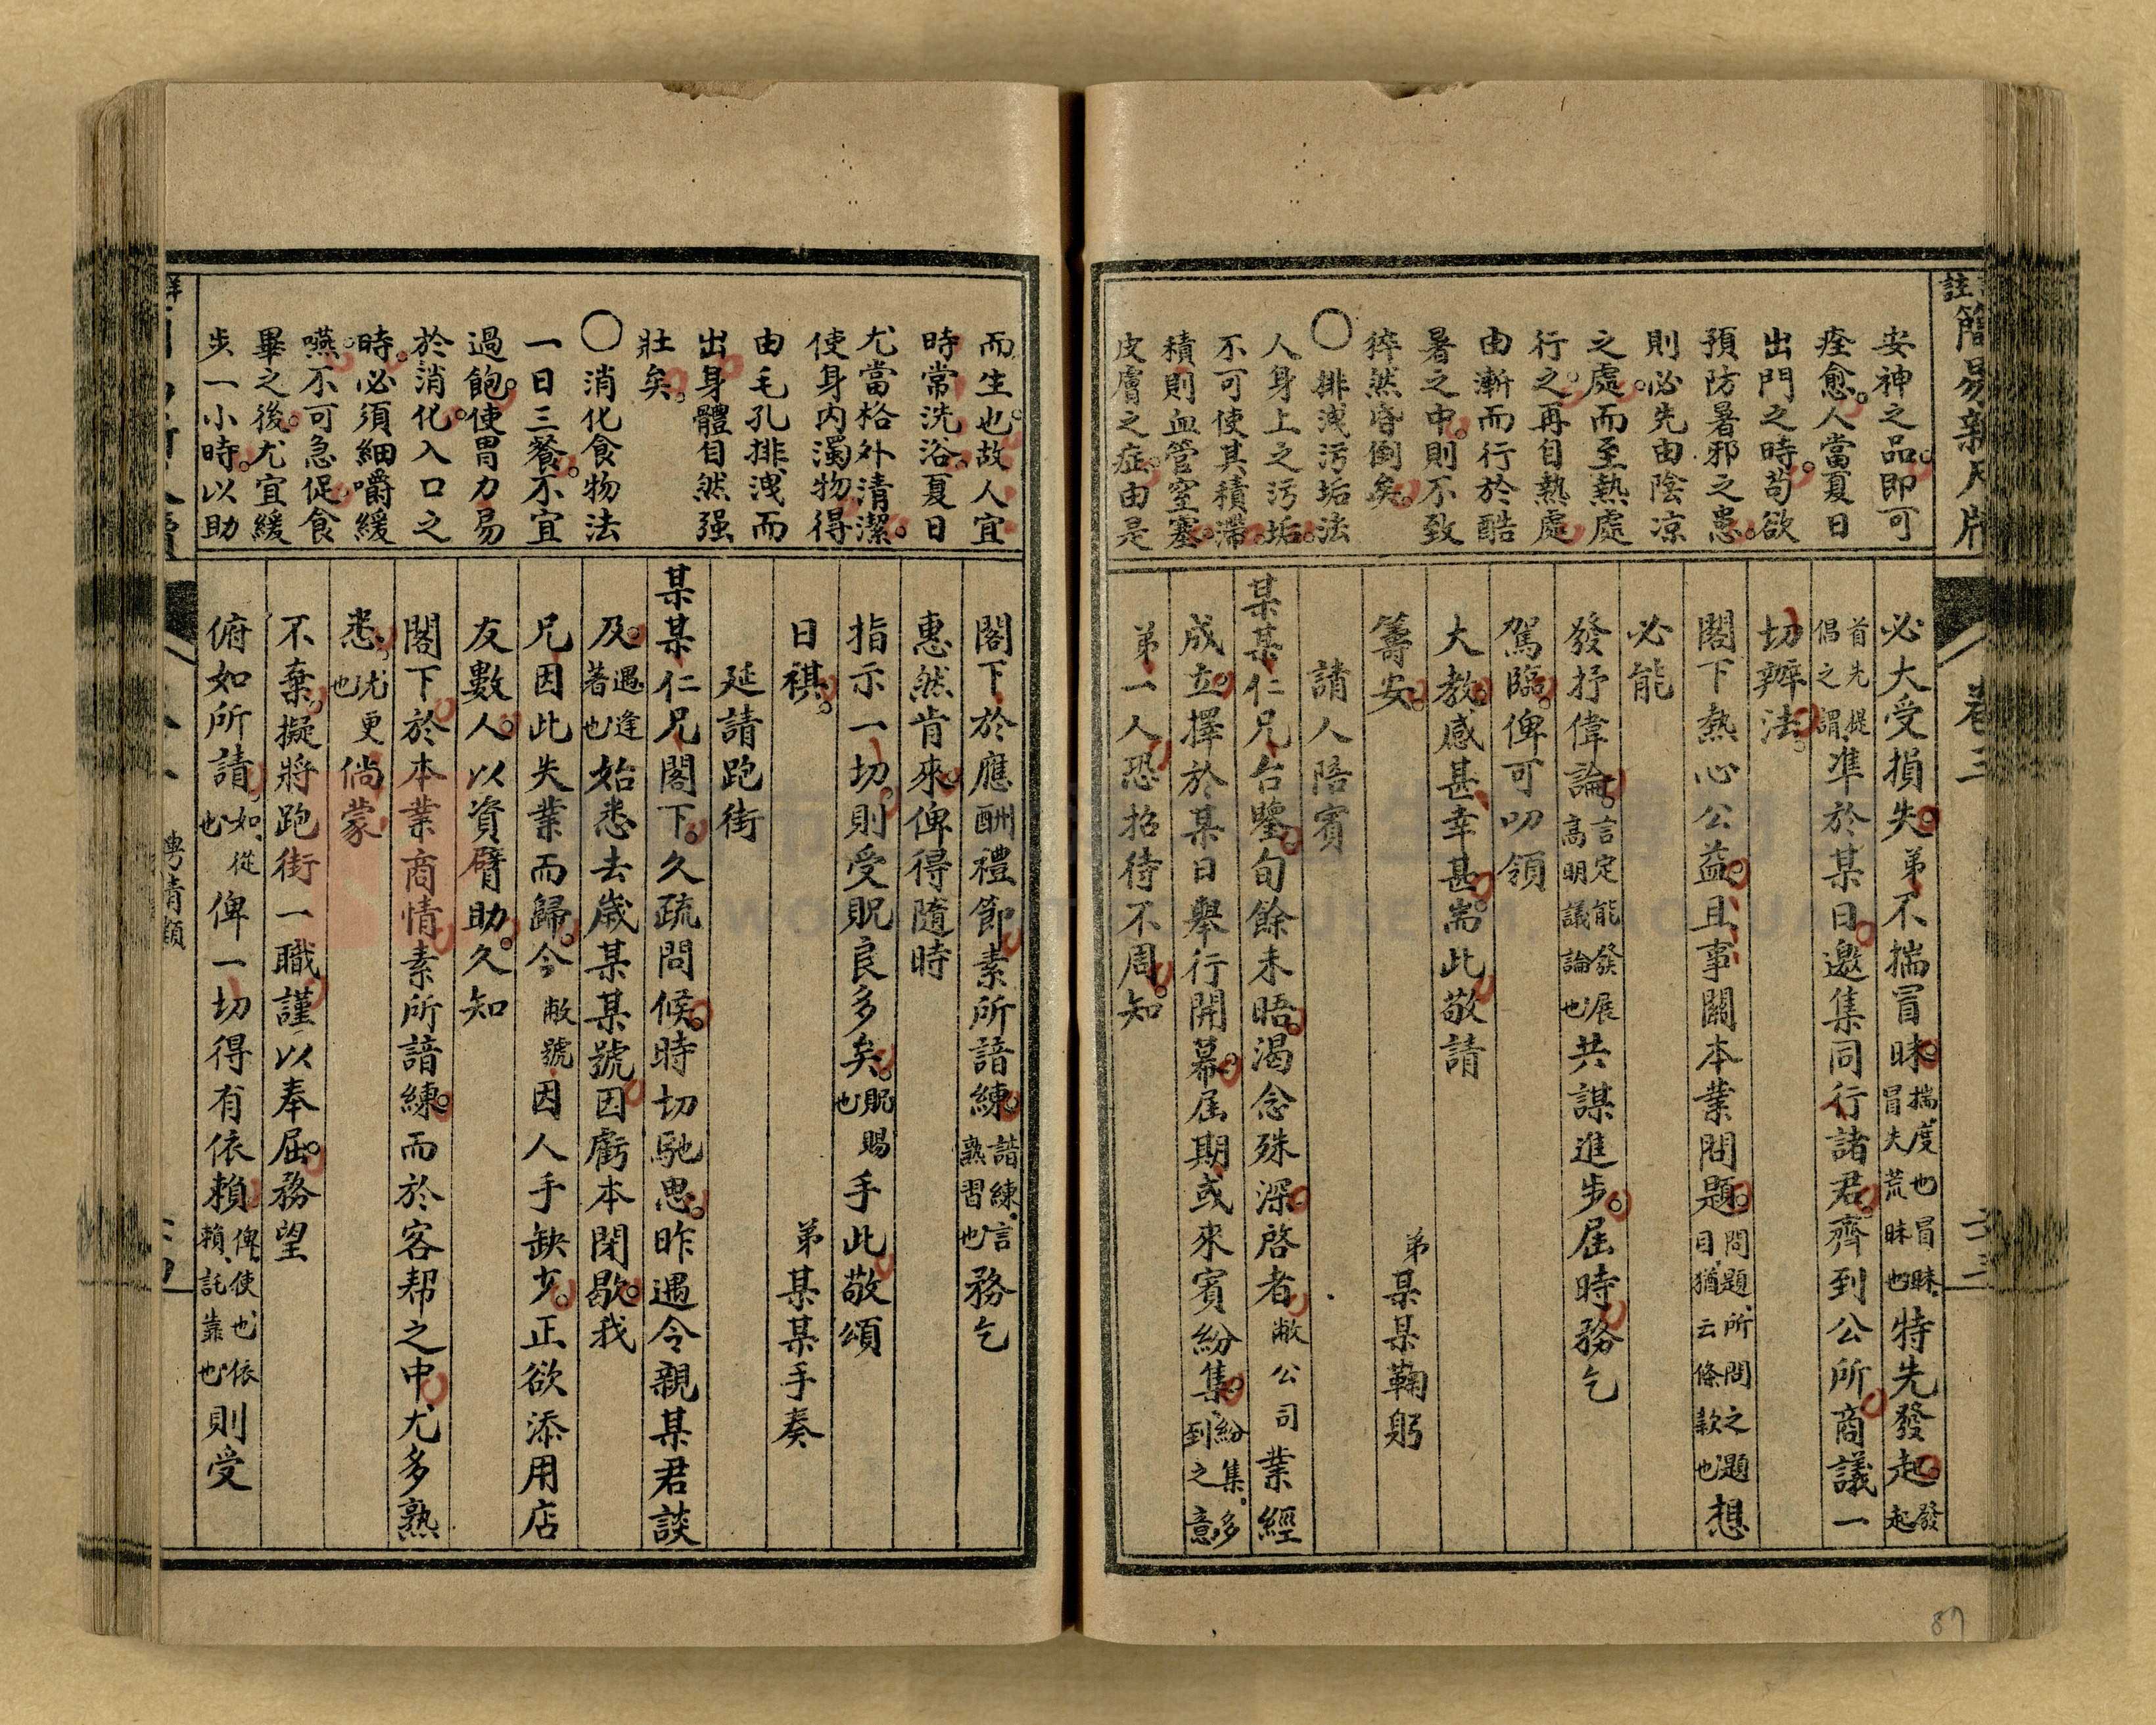 註簡易新尺牘
卷三
安神之品。即可
痊愈。人當夏日
出門之時。苟欲
預防暑邪之患。
則必先由陰凉
之處。而至熱處
行之。再自熱處
由漸而行於酷
暑之中。則不致
猝然昏倒矣。
〇排洩污垢法
人身上之污垢。
不可使其積滯。
積則血管窒塞。
皮膚之症。由是
必大受損失。弟不揣冒昧。揣、度也冒昧、冒夫荒昧也特先發起。發起
首先提倡之謂、準於某日。邀集同行諸君。齊到公所商議一
切辦法。
閣下熱心公益。且事關本業問題。問題、所問之題目、猶云條款也想
必能
發抒偉論。言定能發展高明議論也共謀進步。屆時務乞
駕臨。俾可叨領
大教。感甚幸甚。耑此敬請
籌安。
弟某某鞠躬
請人陪賓
某某仁兄台鑒。旬餘未晤。渴念殊深。啓者敝公司業經
成立。擇於某日舉行開幕。屆期或來賓紛集。紛集、多到之意
弟一人恐招待不周。知
而生也。故人宜
時常洗浴。夏日
尤當格外清潔。
使身內濁物得
由毛孔排洩而
出身體自然强
壯矣。
〇消化食物法
一日三餐。不宜
過飽。使胃力易
於消化。入口之
時。必須細嚼緩
嚥。不可急促食
畢之後。尤宜緩
步一小時。以助
閣下於應酬禮節素所諳練。諳練、言熟習也務乞
惠然肯來。俾得隨時
指示一切。則受貺良多矣。貺賜也手此敬頌
日祺。
弟某某手奏
延請跑街
某某仁兄閣下。久疏問候。時切馳思。昨遇令親某君談
及。遇逢著也始悉去歲某某號因虧本閉歇。我
兄因此失業而歸。今敝號因人手缺少。正欲添用店
友數人。以資臂助。久知
閣下於本業商情素所諳練。而於客帮之中。尤多熟
悉。尤更也倘蒙
不棄。擬將跑街一職。謹以奉屈。務望
俯如所請。如、從也俾一切得有依賴。俾、使也、依賴、託靠也則受
聘請類
87